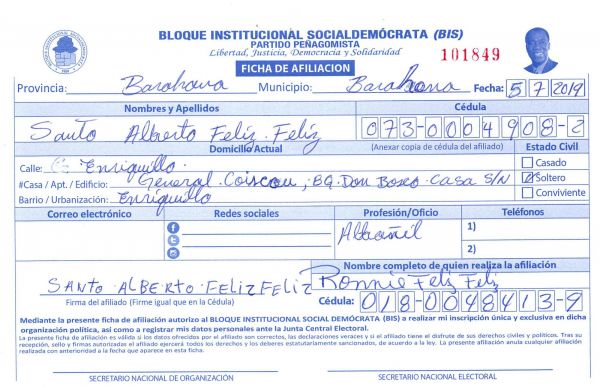 BLOQUE INSTITUCIONAL SOCIALDEMÓCRATA (BIS)
PARTIDO PEÑAGOMISTA
Libertad, Justicia, Democracia y Solidaridad
101849
FICHA DE AFILIACION
Provincia: Barahona Municipio: Barahona Fecha: 5/7/2019
Nombres y Apellidos Cédula
Santo Alberto Feliz Feliz 073-0004908-2
Domicilio Actual (Anexar copia de cédula del afiliado) Estado Civil
Calle: C Enriquillo. Casado
#Casa / Apt. / Edificio: General Coiscou, BQ. Don Bosco Casa S/N Soltero
Barrio / Urbanización: Enriquillo Conviviente
Correo electrónico Redes sociales Profesión/Oficio Teléfonos
Albañil 1)
2)
Nombre completo de quien realiza la afiliación
SANTO ALBERTO FELIZ FELIZ Ronnie Feliz Feliz
Firma del afiliado (Firme igual que en la Cédula) Cédula: 018-0048413-9
Mediante la presente ficha de afiliación autorizo al BLOQUE INSTITUCIONAL SOCIALDEMÓCRATA (BIS) a realizar mi inscripción única y exclusiva en dicha
organización política, así como a registrar mis datos personales ante la Junta Central Electoral.
La presente ficha de afiliación es válida si los datos ofrecidos por el afiliado son correctos, las declaraciones veraces y si el afiliado tiene el disfrute de sus derechos civiles y políticos. Tras su
recepción, sello y firmas autorizadas el afiliado ejercerá todos los derechos y los deberes estatutariamente sancionados, de acuerdo a la ley. La presente afiliación anula cualquier afiliación
realizada con anterioridad a la fecha que aparece en esta ficha.
SECRETARIO NACIONAL DE ORGANIZACIÓN SECRETARIO NACIONAL ELECTORAL